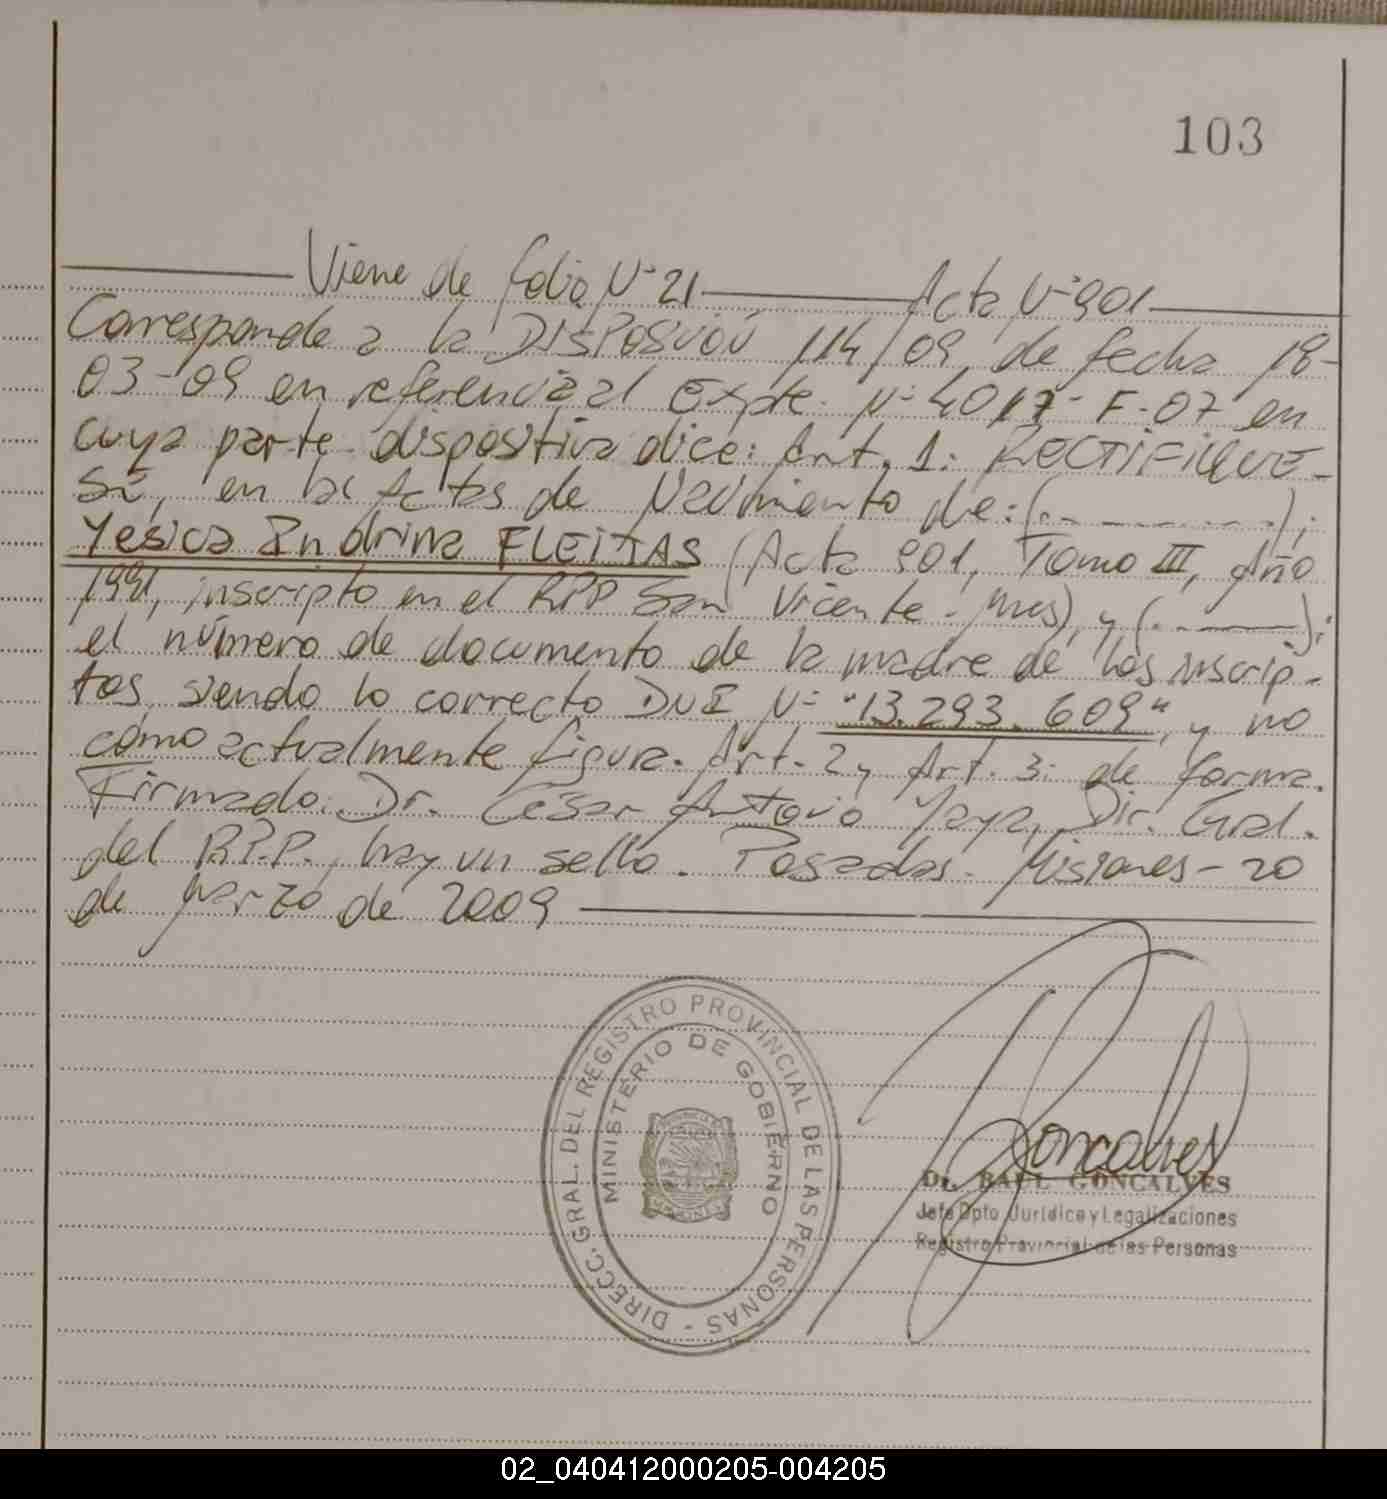 103
Viene de folio Nº 21 Acta Nº 901
Corresponde a la DISPOSICIÓN 114/09, de fecha 18-
03-09 en referencia al Expte. Nº 4017-F-07 en
cuya parte dispositiva dice: Art. 1: RECTIFIQUE-
SE, en las Actas de Nacimiento de: (.- - - - - -.);
Yésica Indrina FLEITAS (Acta 901, Tomo III, Año
1991, inscripto en el RPP San Vicente - Mnes), y (.- - - -);
el número de documento de la madre de los inscrip-
tos, siendo lo correcto DNI Nº "13.293.609", y no
como actualmente figura. Art. 2 y Art. 3: de forma.
Firmado: Dr. César Antonio Yaya, Dir. Gral.
del R.P.P., hay un sello. Posadas - Misiones - 20
de Marzo de 2009
DIRECC. GRAL. DEL REGISTRO PROVINCIAL DE LAS PERSONAS -
MINISTERIO DE GOBIERNO
Goncalves
Dr. RAUL GONCALVES
Jefe Dpto. Jurídico y Legalizaciones
Registro Provincial de las Personas
02_040412000205-004205